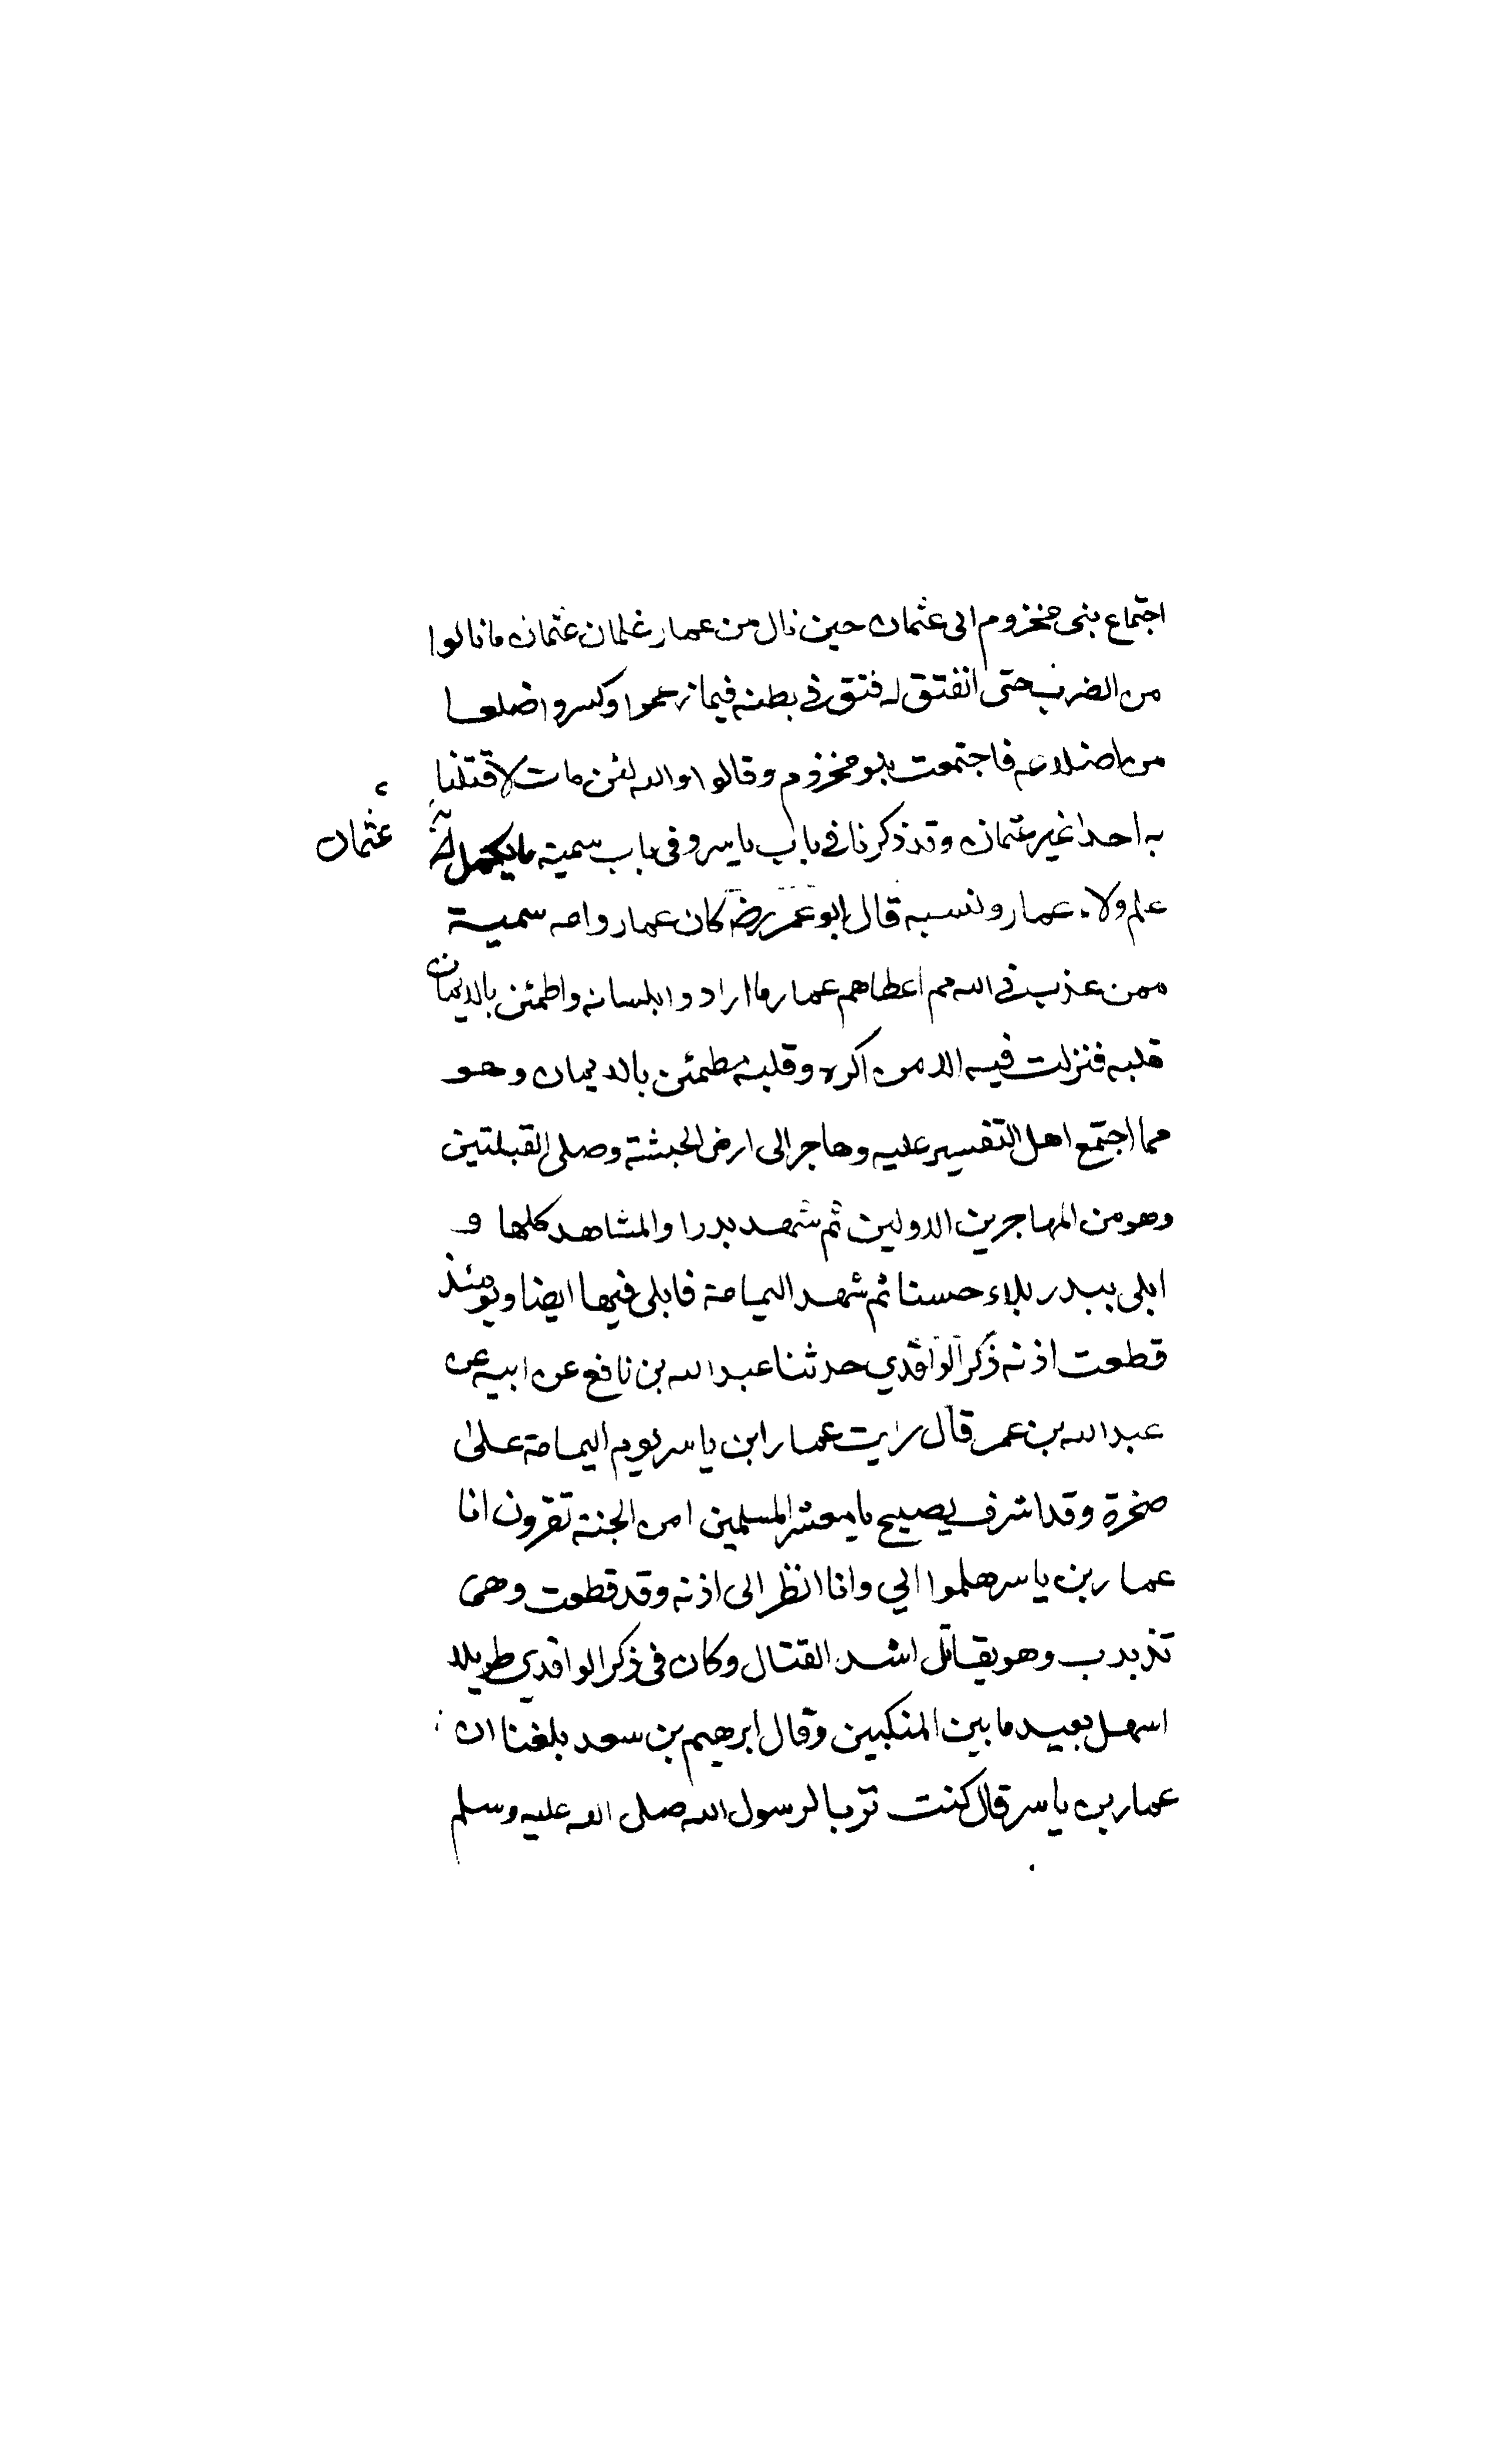 اجتماع بنى مخزوم الى عثمان حين نال من عمار غلمان عثمان ما نالوا
من الضرب حتى انفتق له فتق في بطنه فيما زعموا وكسروا ضلعا
من اضلاعه فاجتمعت بنو مخزوم وقالوا والله لئن مات لا قتلنا
به احدا غير عثمان وقد ذكرنا في باب ياسر وفى باب سمية ما يكمل
عثمان
علم ولاء عمار ونسبه قال ابو عمر رضه كان عمار وامه سمية
ممن عذب في الله ثم اعطاهم عمار ما ارادوا بلسانه واطمئن بالايمان
قلبه فنزلت فيه الا من اكره وقلبه مطمئن بالايمان وهو
مما اجتمع اهل التفسير عليه وهاجر الى ارض الحبشة وصلى القبلتين
وهو من المهاجرين الاولين ثم شهد بدرا والمشاهد كلها و
ابلى ببدر بلاء حسنا ثم شهد اليمامة فابلى فيها ايضا ويومئذ
قطعت اذنه ذكر الواقدي حدثنا عبد الله بن نافع عن ابيه عن
عبد الله بن عمر قال رايت عمار ابن ياسر يوم اليمامة على
صخرة وقد اشرف يصيح يا معشر المسلمين امن الجنة تفرون انا
عمار بن ياسر هلموا الي وانا انظر الى اذنه وقد قطعت وهى
تذبذب وهو يقاتل اشد القتال وكان فى ذكر الواقدي طويلا
اسهل بعيد ما بين المنكبين وقال ابرهيم بن سعد بلغنا ان
عمار بن ياسر قال كنت تربا لرسول الله صلى الله عليه وسلم